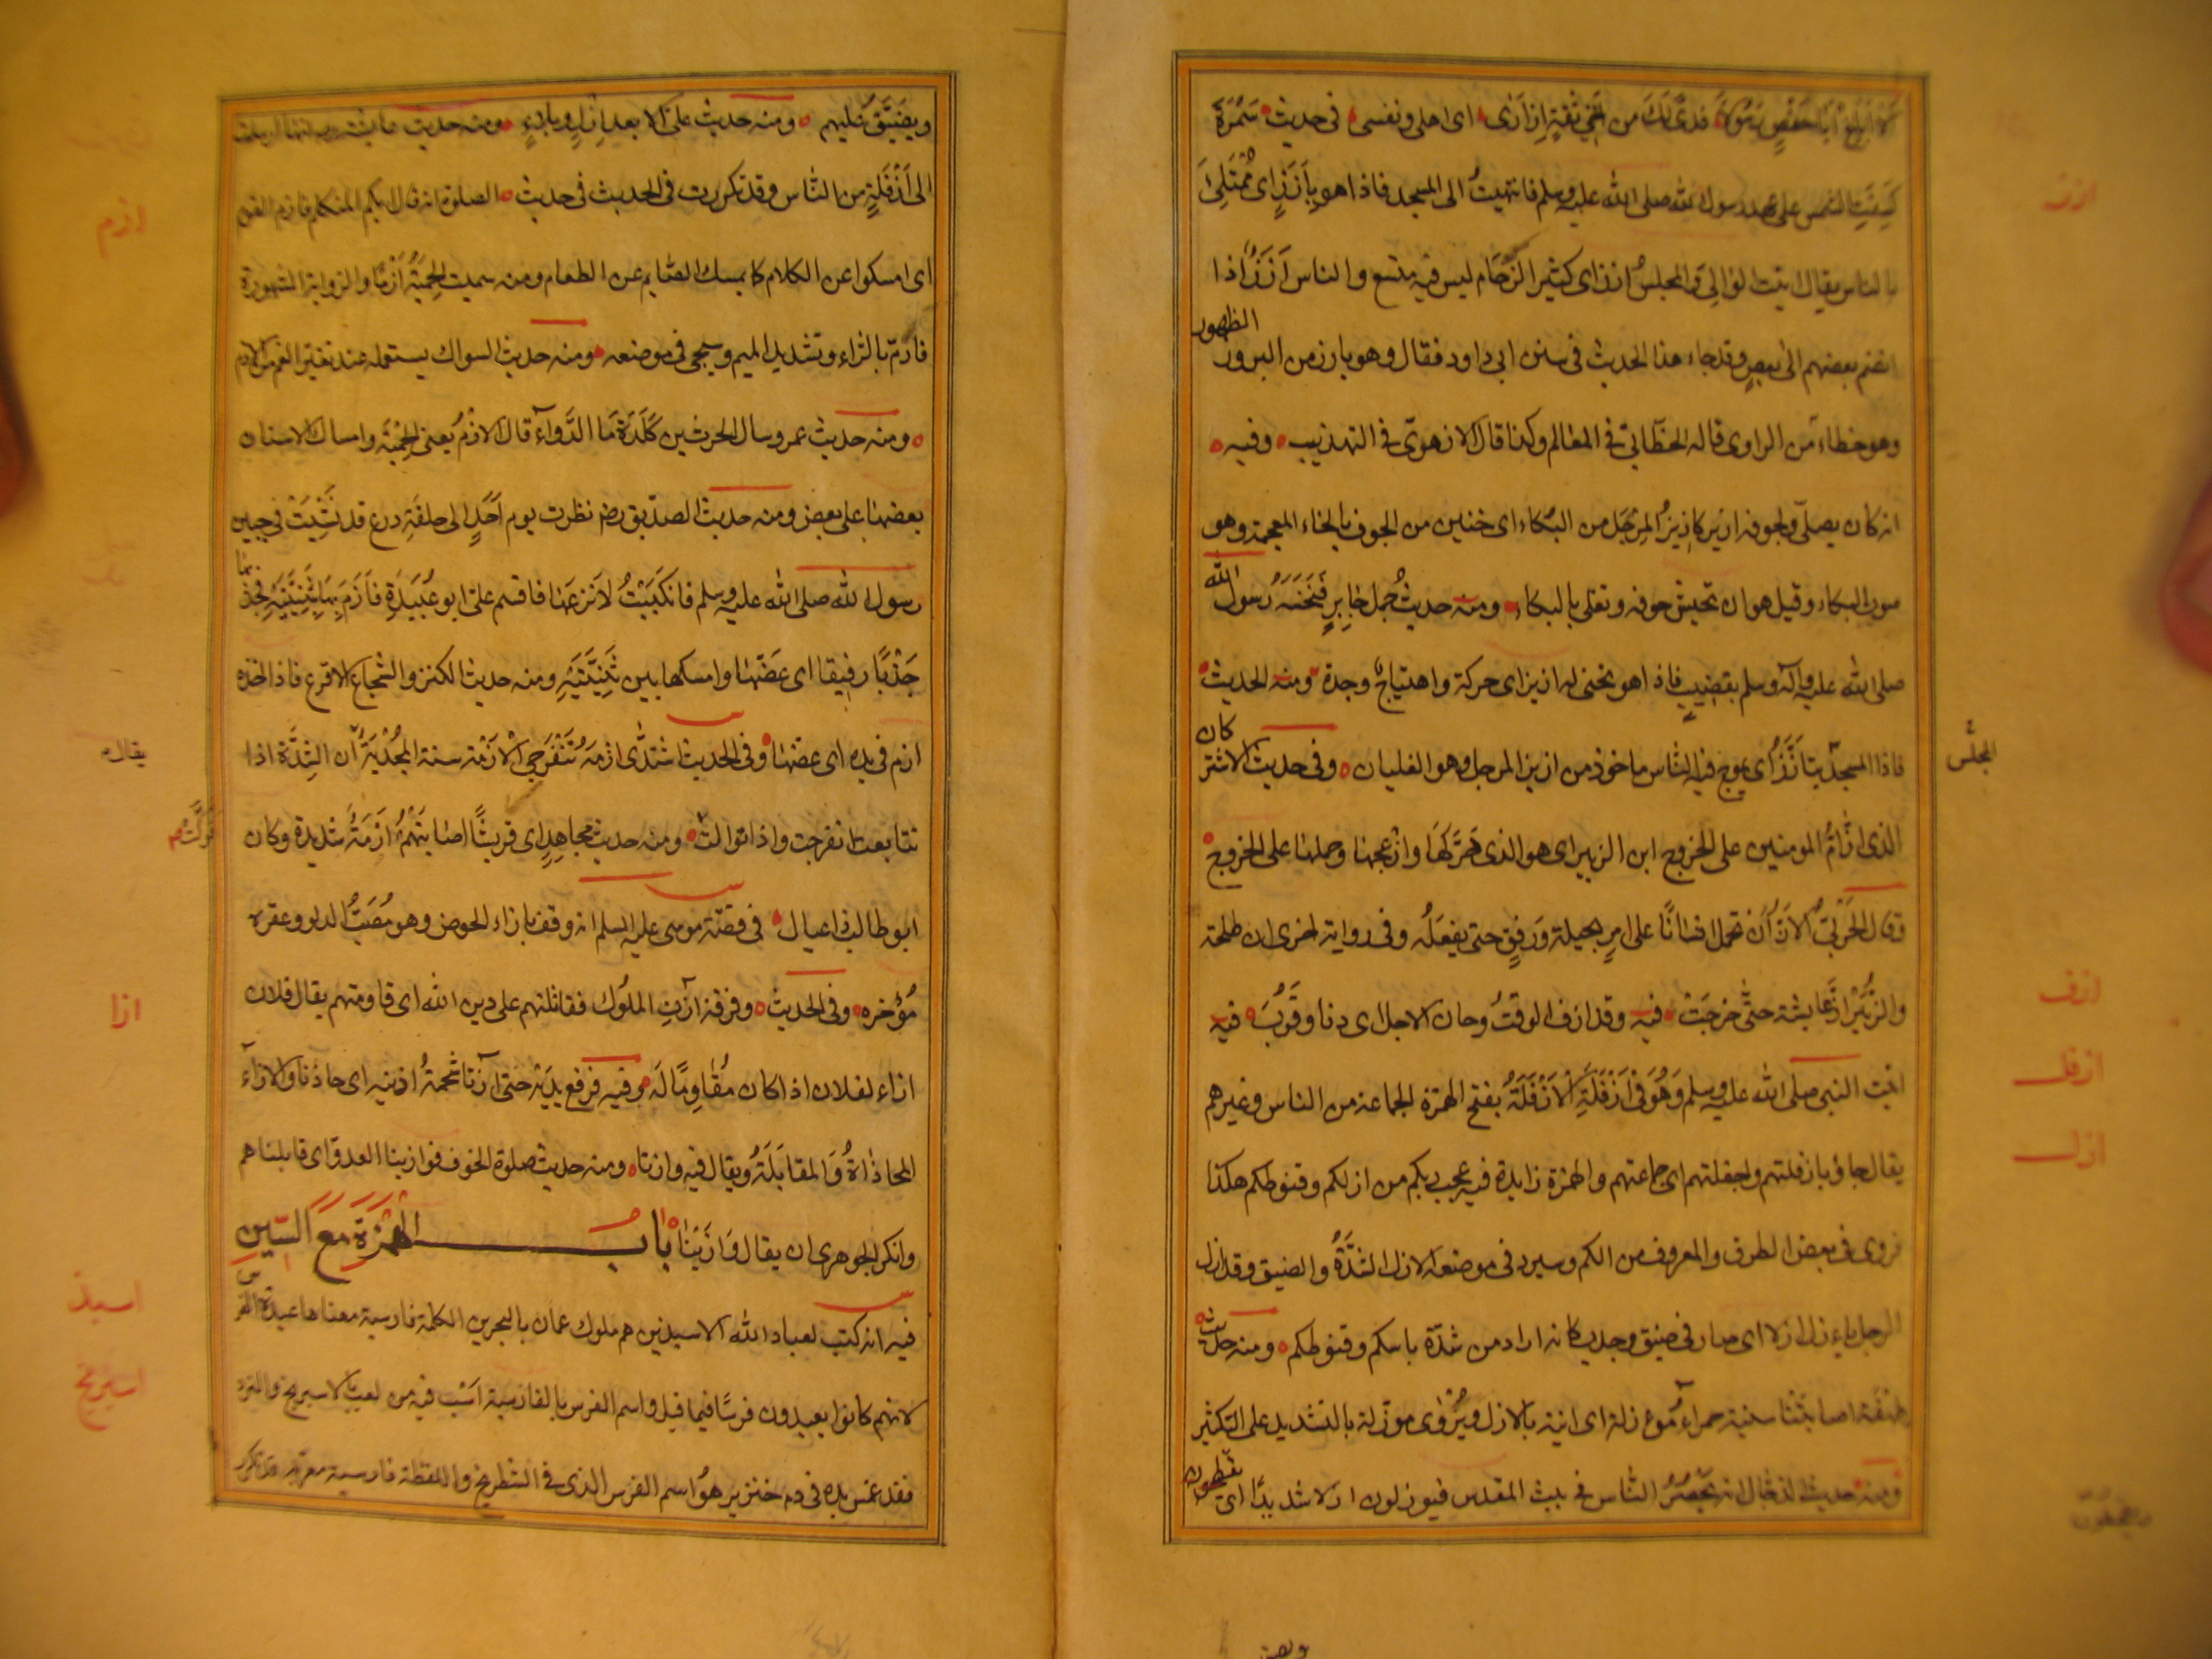 ألا أبلغ أبا حفص رسولا فدى لك من أخي ثقة إزاري اى اهلى ونفسى فى حديث سمرة
كسفت الشمس على عهد رسول الله صلى الله عليه وسلم فانتهيت الى المسجد فاذا هو بأزز اى ممتلئ
بالناس يقال اتيت الوالى والمجلس ازز اى كثير الزحام ليس فيه متسع والناس ازز اذا
انضم بعضهم الى بعض وقد جاء هذا الحديث فى سنن ابى داود فقال وهو بارز من البروز الظهور
وهو خطاء من الراوى قاله الخطابى فى المعالم وكذا قال الازهرى فى التهذيب وفيه
انه كان يصلى ولجوفه ازيز كازيز المرجل من البكاء اى خنين من الجوف بالخاء المعجمة وهو
صوت البكاء وقيل هو ان تجيش جوفه وتغلى بالبكاء ومنه حديث جمل جابر فنخسه رسول الله
صلى الله عليه وآله وسلم بقضيب فاذا هو تحتى له ازيز اى حركة واهتياج وحدة ومنه الحديث
فاذا المسجد يتأزز اى يموج فيه الناس ماخوذ من ازيز المرجل وهو الغليان وفى حديث الاشتر كان
الذى از ام المومنين على الخروج ابن الزبير اى هو الذى حركها وازعجها وحملها على الخروج
وقال الحربى الاز ان تحمل انسانا على امر بحيلة ورفق حتى يفعله وفى رواية اخرى ان طلحة
والزبير ازا عايشة حتى خرجت فيه وقد ازف الوقت وحان الاجل اى دنا وقرب فيه
اتيت النبى صلى الله عليه وسلم وهو فى ازفلة الازفلة بفتح الهمزة الجماعة من الناس وغيرهم
يقال جاؤ بازفلتهم واجفلتهم اى جماعتهم والهمزة زايدة فيه عجب ربكم من ازلكم وقنوطكم هكذا
يروى فى بعض الطرق والمعروف من الكم وسيرد فى موضعه الازل الشدة والضيق وقد ازل
الرجل يأزل ازلا اى صار فى ضيق وجدب كانه اراد من شدة باسكم وقنوطكم ومنه حديث
طهفة اصابتنا سنية حمراء مؤزلة اى اتية بالازل ويروى موزلة بالتشديد على التكثير
ومنه حديث الدجال انه يحصر الناس فى بيت المقدس فيوزلون ازلا شديدا اى يقحطون
ازز
المجلس
ازف
ازفل
ازل
ويضيق عليهم ومنه حديث على الا بعد ازل وبلاء ومنه حديث عايشة
الى ازفلة من الناس وقد تكررت فى الحديث فى حديث الصلوة انه قال ايكم المتكلم فازم القوم
اى امسكوا عن الكلام كما يمسك الصايم عن الطعام ومنه سميت الحمية ازما والرواية المشهورة
فارم بالراء وتشديد الميم وسيجى فى موضعه ومنه حديث السواك يستعمله عند تغير الفم من الازم
ومنه حديث عمر وسال الحرث بن كلدة ما الدواء قال الازم يعنى الحمية وامساك الاسنان
بعضها على بعض ومنه حديث الصديق رضه نظرت يوم احد الى حلقة درع قد نشبت فى جبين
رسول الله صلى الله عليه وسلم فانكببت لانزعها فاقسم على ابو عبيدة فازم بها بثنيتيه فجذبها
جذبا رفيقا اى عضها وامسكها بين ثنيتيه ومنه حديث الكنز والشجاع الاقرع فاذا اخذه
ازم فى يده اى عضها وفى الحديث اشتدى ازمة تنفرجى الازمة سنة المجدبة ان الشدة اذا
تتابعت انفرجت واذا توالت ومنه حديث مجاهد اى قريشا اصابتهم ازمة شديدة وكان
ابو طالب ذا عيال فى قصة موسى عليه السلم انه وقف بازاء الحوض وهو مصب الدلو وعقره
مؤخره وفى الحديث وفرقة ازت الملوك فقاتلتهم على دين الله اى قاومتهم يقال فلان
ازاء لفلان اذا كان مقاوما له وفيه فرفع يديه حتى ازتا شحمة اذنيه اى حاذتا والازاء
المحاذاة والمقابلة ويقال فيه وازتا ومنه حديث صلوة الخوف فوازينا العدو اى قابلناهم
وانكر الجوهرى ان يقال وازينا باب الهمزة مع السين
فيه انه كتب لعباد الله الاسبذين هم ملوك عمان بالبحرين الكلمة فارسية معناها عبدة الفرس
لانهم كانوا يعبدون فرسا فيما قيل واسم الفرس بالفارسية اسب فيه من لعب بالاسبرنج والنرد
فقد غمس يده فى دم خنزير هو اسم الفرس الذى فى الشطرنج واللفظة فارسية معربة
ازم
يقال
تزلت
ازا
اسبذ
اسبرنج